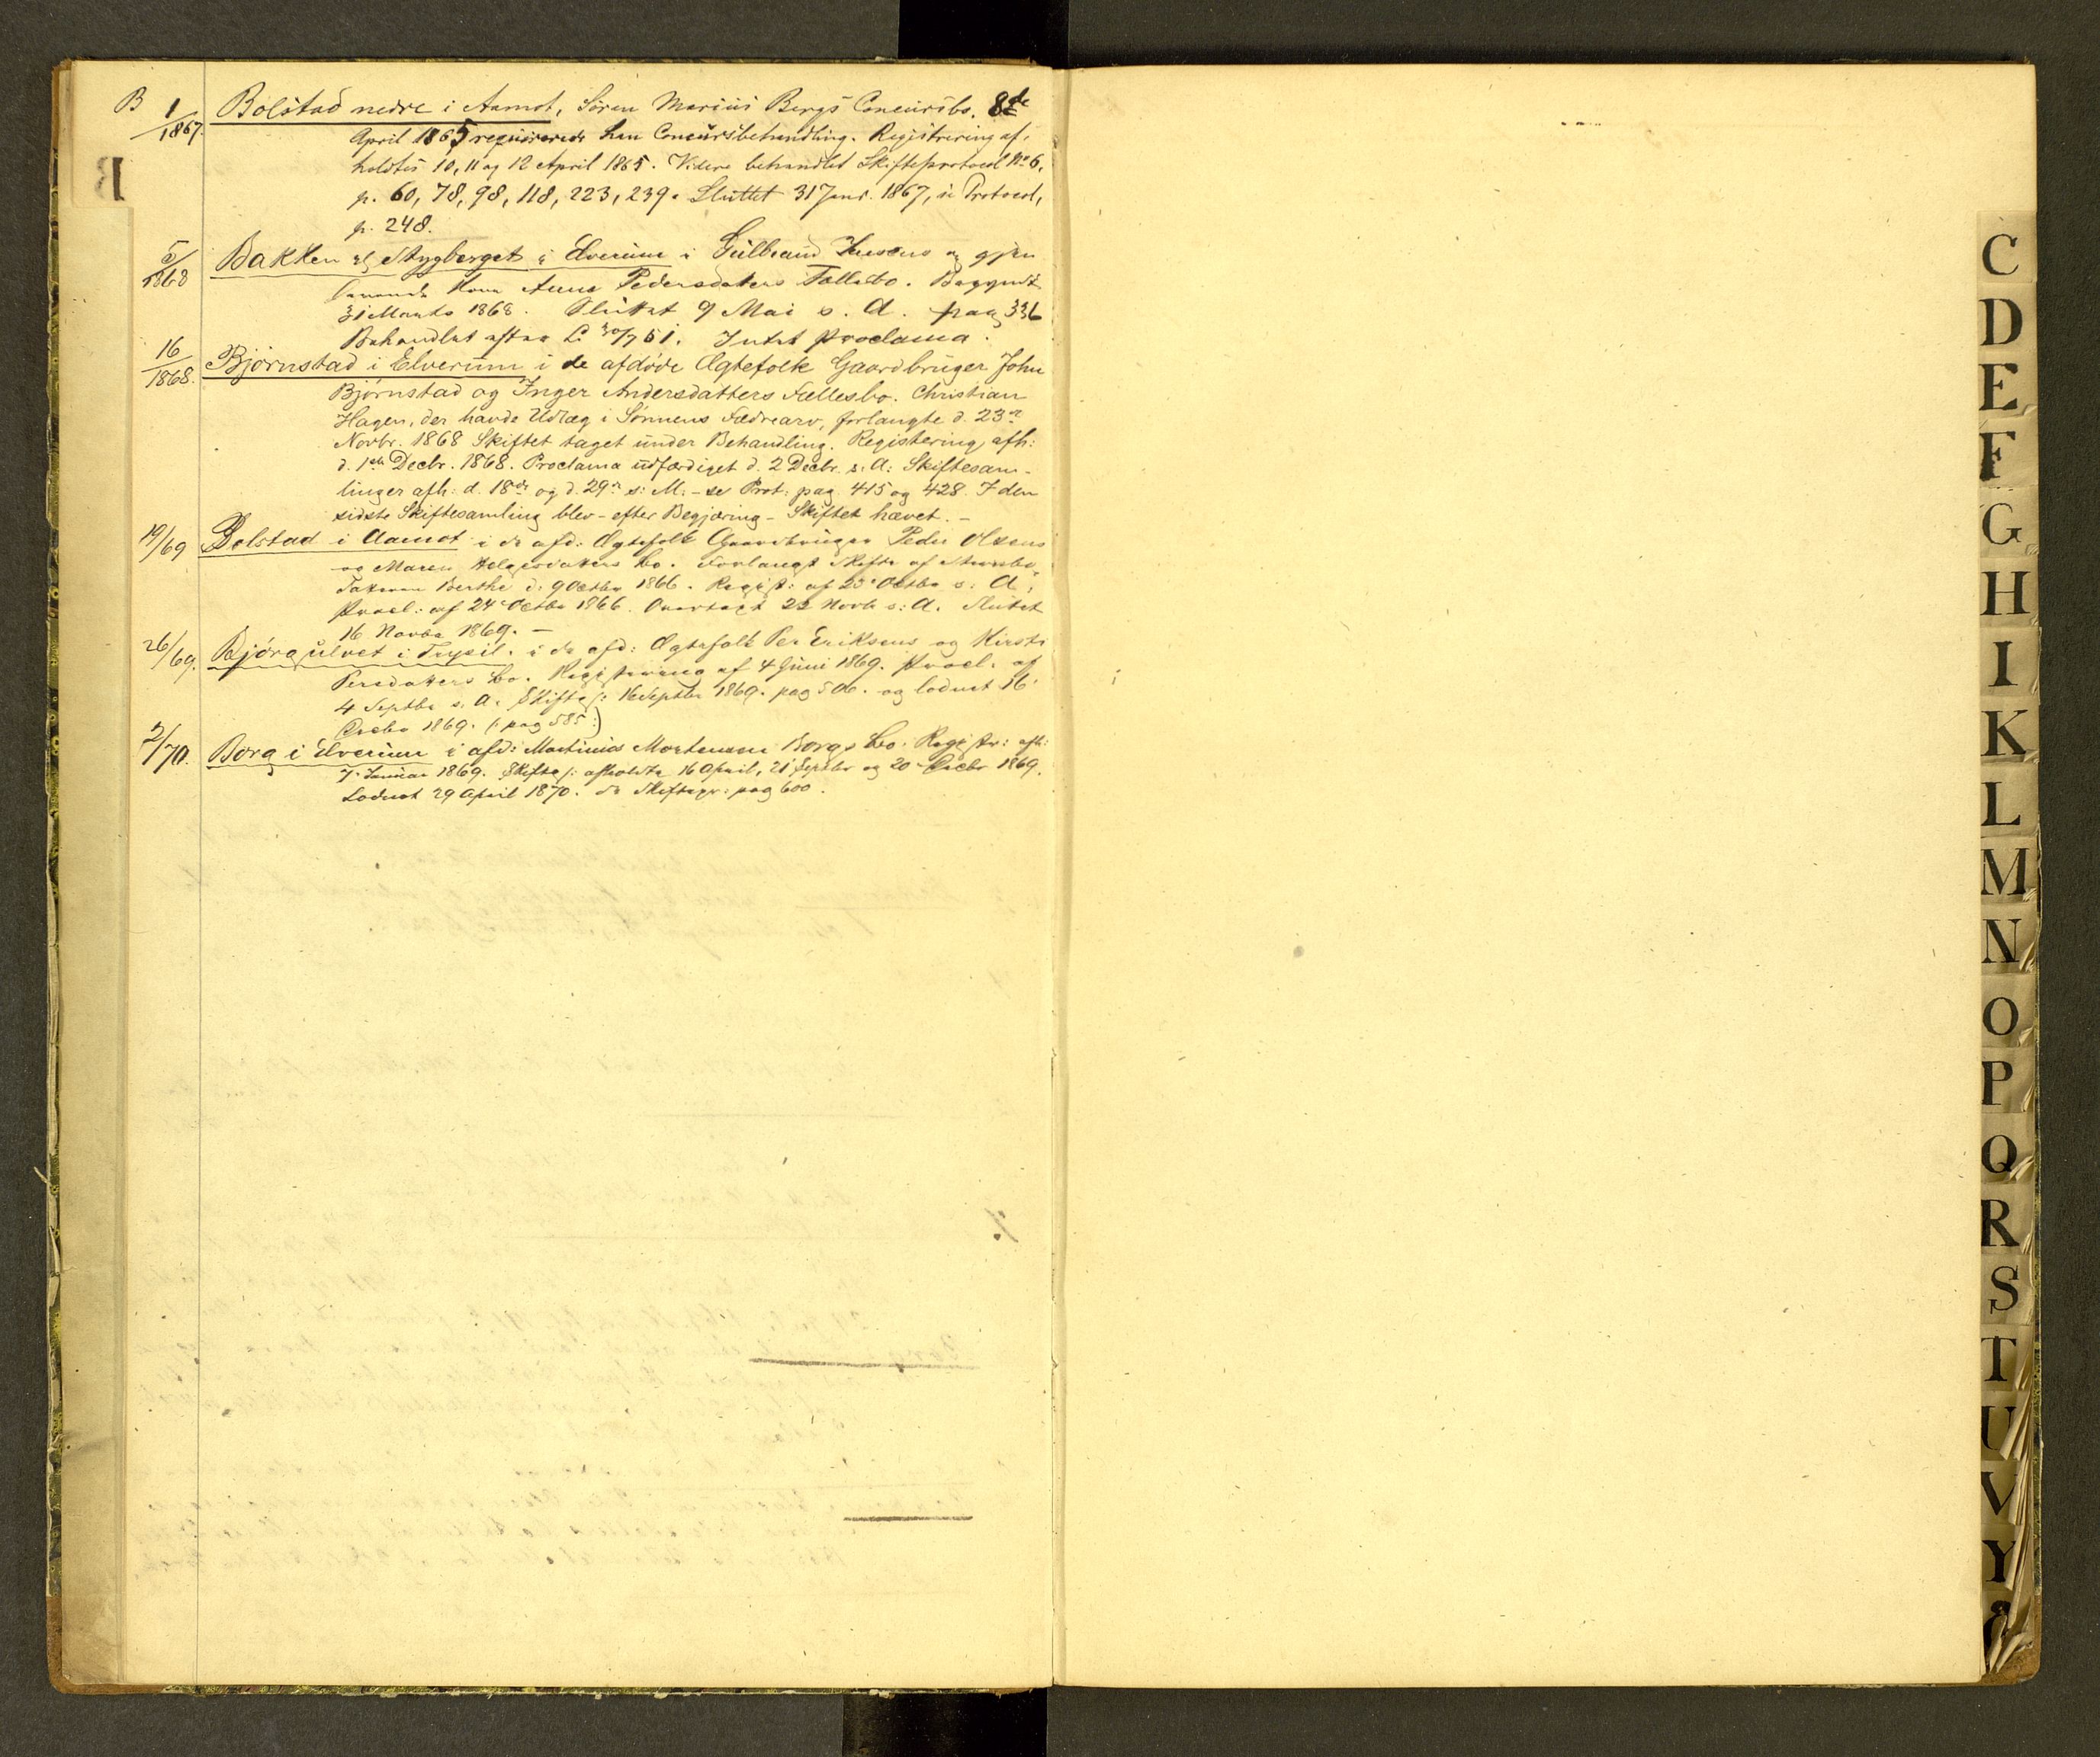 B 1/1867. Bolstad nedre i Aamot, Søren Marius Bergs Concursbo. 8de
April 1865 requirerede han Concursbehandling. Registrering af-
holdtes 10, 11 og 12 April 1865. Videre behandlet Skifteprotocol No 6,
p. 60, 78, 98, 118, 223, 239. Sluttet 31 Janr. 1867, se Protocol,
p. 248.
B
5/1868 Bakken Stygberget i Elverum i Gulbrand og gjen
Kone Anne Pedersdatters Fællesbo. Begyndt
31 Marts 1868. Sluttet 9 Mai s. A. pag 336
Behandlet efter L. 30/7 51. Intet proclama.
16/1868. Bjørnstad i Elverum i de afdøde Ægtefolk Gaardbruger John
Bjørnstad og Inger Andersdatters Fællesbo. Christian
Hagen, der havde Udlæg i Sønnens Fædrearv, forlangte d. 23de
Novbr. 1868 Skiftet taget under Behandling. Registering afh:
d. 1ste Decbr. 1868. Proclama udfærdiget d. 2 Decbr. s. A: Skiftesam-
linger afh: d. 18de og d. 29de s: M: - se Prot: pag. 415 og 428. I den
sidste Skiftesamling blev - efter Begjæring - Skiftet hævet. -
19/69 Bolstad i Aamot i de afd: Ægtefolk Gaardbruger Peder Olsens
og Maren Helgesdatters bo. Forlangt Skifte af
Berthe d. 9 Octbr 1866. Regist: af 23 Octbr s: A.
Procl: af 24 Octbr 1866. 22 Novb s: A. Sluttet
16 Novbr 1869. -
26/69. Bjørgulvet i Trysil. i de afd: Ægtefolk Per Eriksens og Kirsti
Persdatters bo. Registrering af 4 Juni 1869. Procl. af
4 Septbr s. A. Skifte 16 Septbr 1869. pag og 16
Decbr 1869. (: pag 585 :)
2/70. Borg i Elverum i afd: Martinius Mortensen Borgs bo. Registr: afh:
7 Januar 1869. Skifte afholdte 16 April, 21 Septbr og 20 Decbr 1869.
29 April 1870. Se Skiftepr: pag 600.
C
D
E
F
G
H
I
K
L
M
N
O
P
Q
R
S
T
U
V
Y